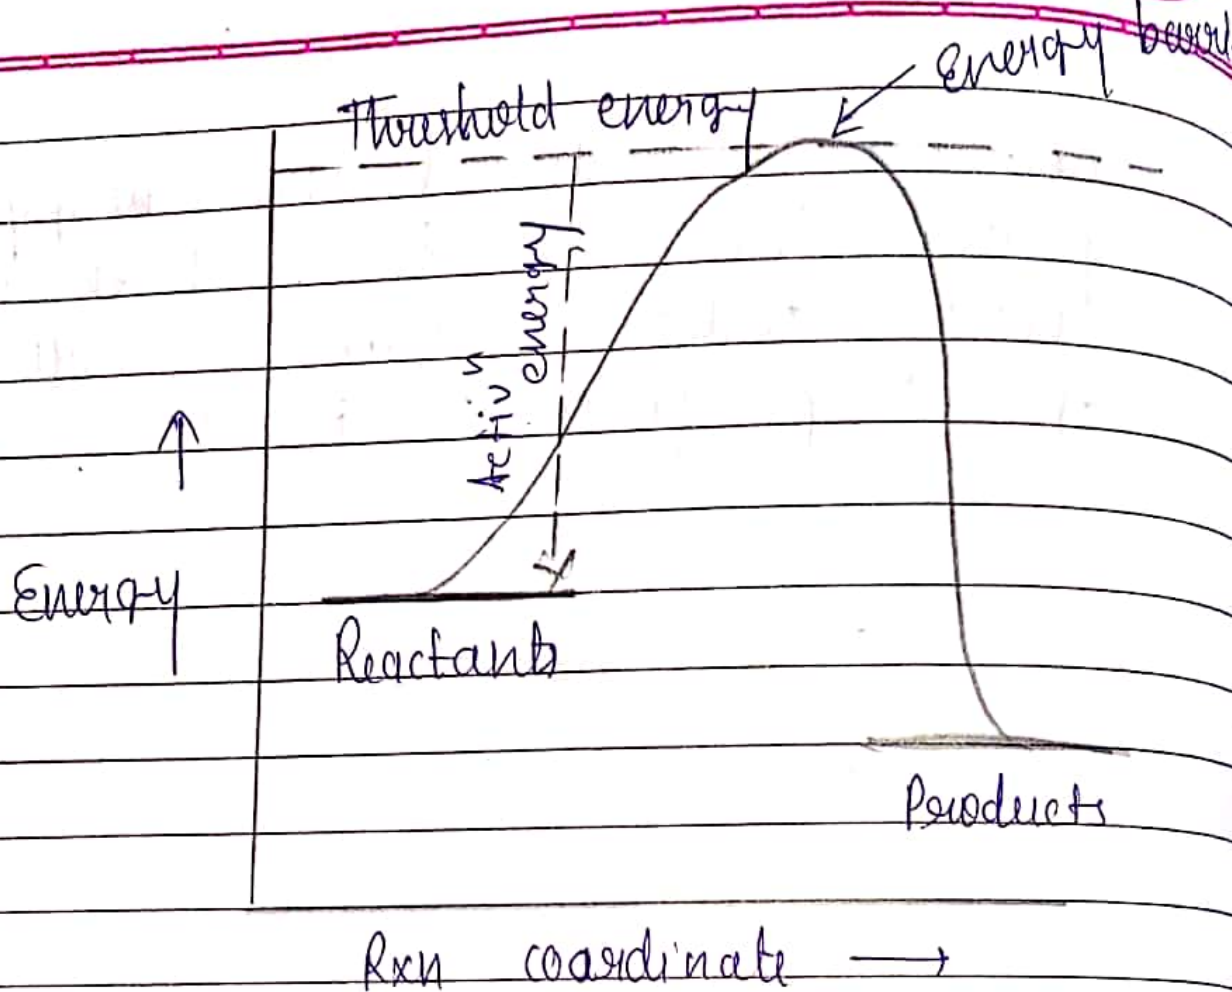 Energy
Threshold energy
Activⁿ
energy
Energy
Reactants
Products
Rxn coardinate